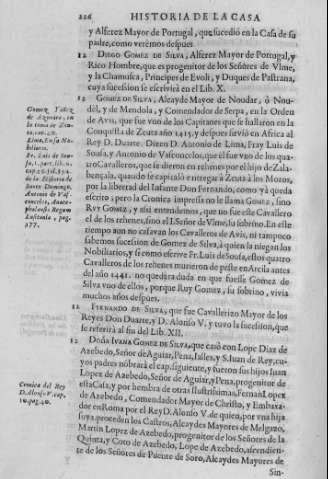 226 HISTORIA DE LA CASA
y Alferez Mayor de Portugal, que sucedió en la Casa de su
padre, como verèmos despues.
12 DIEGO GOMEZ DE SILVA, Alferez Mayor de Portugal, y
Rico Hombre, que es progenitor de los Señores de Vlme,
y la Chamusca, Principes de Evoli, y Duques de Pastrana,
cuya sucession se escrivirà en el Lib. X.
12 GOMEZ DE SILVA, Alcayde Mayor de Noudar, ò Nou-
del, y de Mendola, y Comendador de Serpa, en la Orden
de Avis, que fue vno de los Capitanes que se hallaron en la
Conquista de Zeuta año 1415. y despues sirviò en Africa al
Rey D. Duarte. Dizen D. Antonio de Lima, Fray Luis de
Sousa, y Antonio de Vasconcelos, que èl fue vno de los qua-
tro Cavalleros, que se dieron en rehenes por el hijo de Zala-
bençala, quando se capitulò entregar à Zeuta à los Moros,
por la libertad del Infante Don Fernando, como yà queda
escrito; pero la Cronica impressa no le llama GOMEZ, sino
RVY GOMEZ, y assi entendemos, que no fue este Cavallero
el de los rehenes, sino el I. Señor de Vlme, su sobrino. En este
tiempo aun no casavan los Cavalleros de Avis, ni tampoco
sabemos sucession de Gomez de Silva, à quien la niegan los
Nobiliarios, y si como escrive Fr. Luis de Sousa, estos quatro
Cavalleros de los rehenes murieron de peste en Arcila antes
del año 1441. no quedarà duda en que fuesse Gomez de
Silva vno de ellos, porque Ruy Gomez, su sobrino, vivia
muchos años despues.
12 FERNANDO DE SILVA, que fue Cavallerizo Mayor de los
Reyes Don Duarte, y D. Alonso V. y tuvo la sucession, que
se referirà al fin del Lib. XII.
12 Doña IVANA GOMEZ DE SILVA, que casò con Lope Diaz de
Azebedo, Señor de Aguiar, Pena, Jalles, y S. Juan de Rey, cu-
yos padres nobrarà el cap. siguiente, y fueron sus hijos Juan
Lopez de Azebedo, Señor de Aguiar, y Pena, progenitor de
esta Casa, y por hembra de otras ilustrissimas, Fernan Lopez
de Azebedo, Comendador Mayor de Christo, y Embaxa-
dor en Roma por el Rey D. Alonso V. de quien, por vna hija
suya proceden los Castros, Alcaydes Mayores de Melgazo,
Martin Lopez de Azebedo, progenitor de los Señores de la
Quinta, y Coto de Azebedo, Lope de Azebedo, ascendien-
te de los Señores de Puente de Soro, Alcaydes Mayores de
Sin-
Gomez Yañez
de Azurara, en
la toma de Zeu-
ta, cap.
Lima, En su No-
biliario.
Fr. Luis de Sou-
sa,
de la Historia de
Santo Domingo.
Antonio de Vas-
concelos, Anace-
phaleosis Regum
Lusitania, pag.
177.
Cronica del Rey
D. Alonso V. cap.
10. pag. 40.